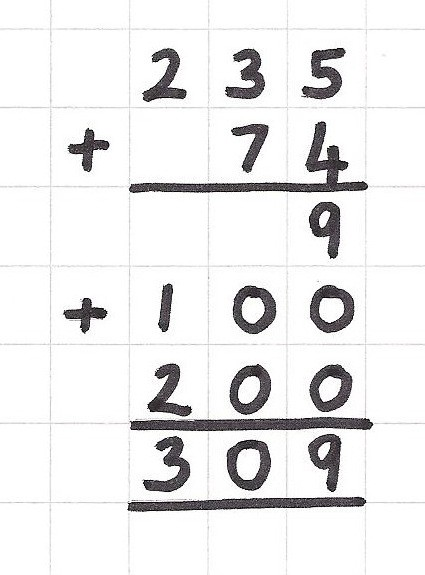 2 3 5
+ 7 4
9
+ 1 0 0
2 0 0
3 0 9